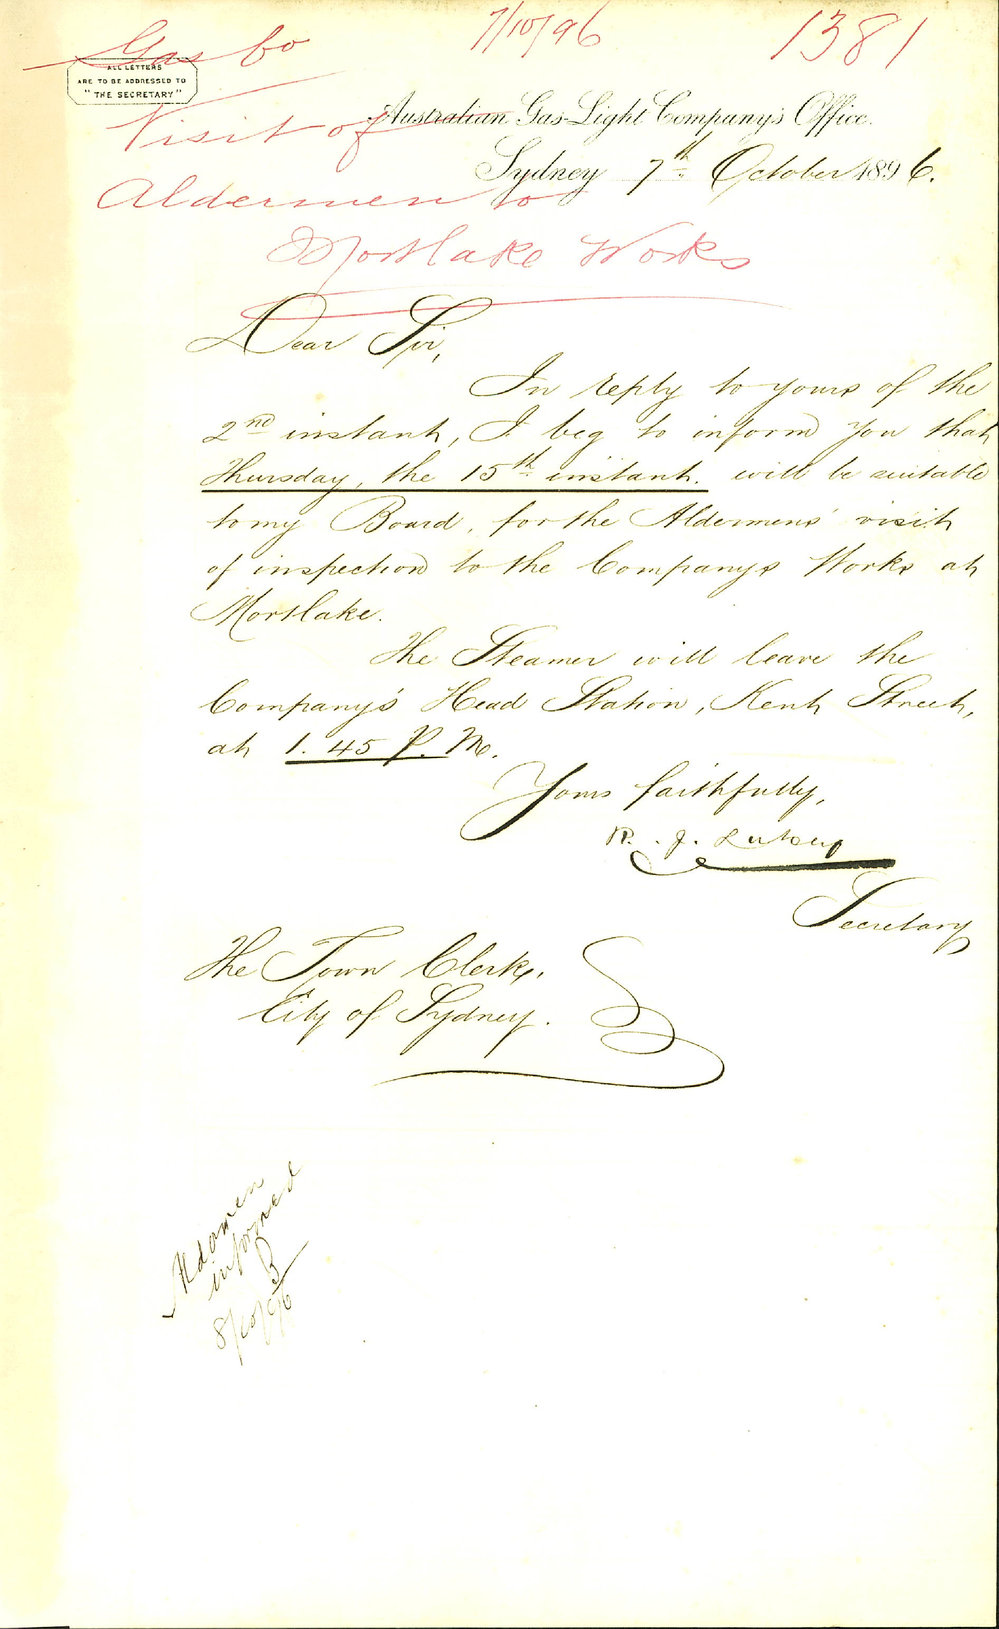 Gas Co
7/10/96
1381
ALL LETTERS
ARE TO BE ADDRESSED TO
"THE SECRETARY"
Visit of
Aldermen to
Mortlake Works
Australian Gas-Light Company's Office.
Sydney 7th October 1896.
Dear Sir,
In reply to yours of the
2nd instant, I beg to inform you that
Thursday, the 15th instant. will be suitable
to my Board, for the Aldermens' visit
of inspection to the Company's Works at
Mortlake.
The Steamer will leave the
Company's Head Station, Kent Street,
at 1.45 P.M.
Yours faithfully,
R. J. Lukey
Secretary
The Town Clerk,
City of Sydney.
Aldermen
informed
8/10/96